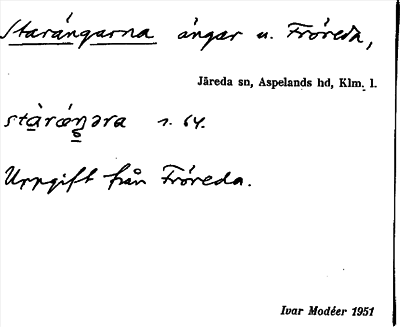 Starängarna ängar u. Fröreda,
Järeda sn, Aspelands hd, Klm. l.
stàræŋ̊əra s. 64.
Uppgift från Fröreda.
Ivar Modéer 1951